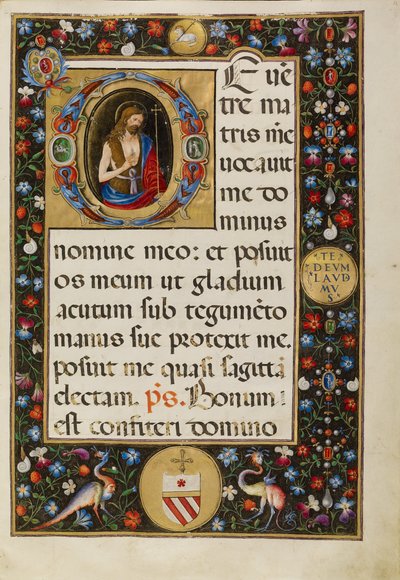 DE uẽ
tre ma
tris m̃e
uocauit
me do
minus
nomine meo: et posuit
os meum ut gladium
acutum sub tegumẽto
manus sue protexit me.
posuit me quasi sagittã
electam. p̃s. Bonum
est confiteri domino
TE
DEVM
LAVD
MV
S